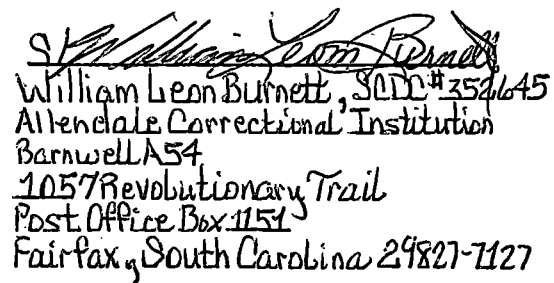 S/ William Leon Burnett
William Leon Burnett, SCDC#352645
Allendale Correctional Institution
Barnwell A54
1057 Revolutionary Trail
Post Office Box 1151
Fairfax, South Carolina 29827-7127